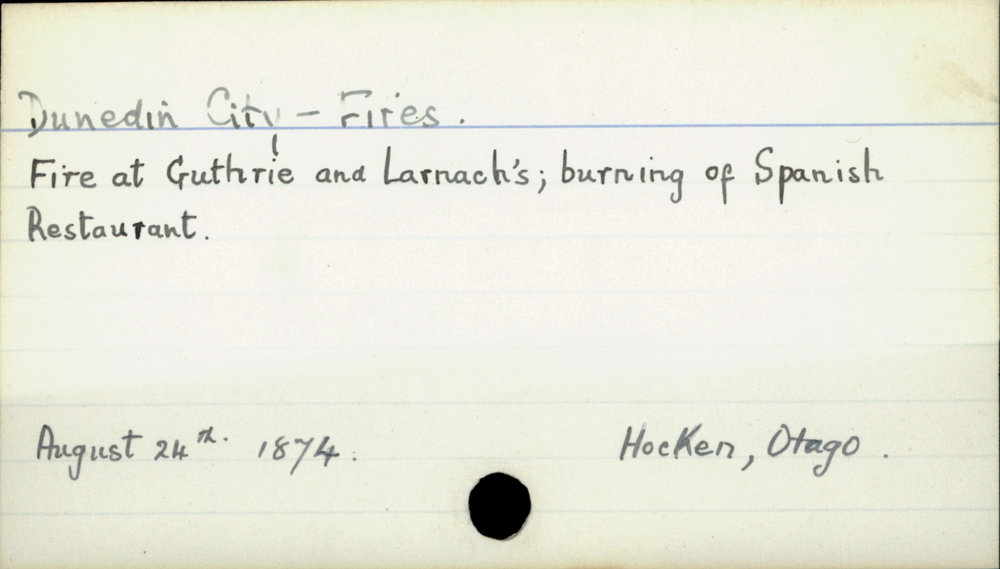 Dunedin City - Fires.
Fire at Guthrie and Larnach's; burning of Spanish
Restaurant.
August 24th. 1874. Hocken, Otago.